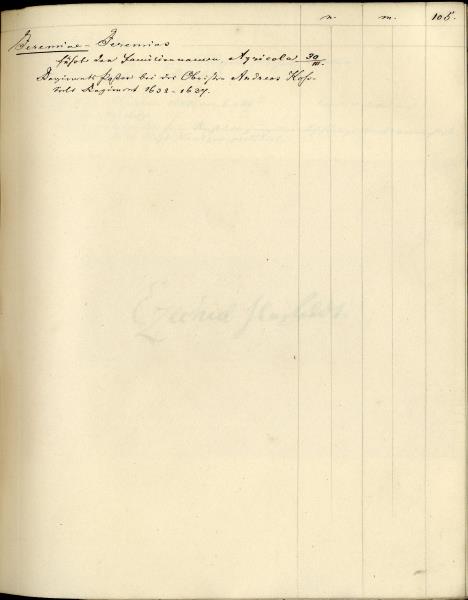 n. m. 105.
Jeremiae - Jeremias
führt den Familiennamen Agricola 30/III.
Regiments Pastor bei des Obristen Andreas Kos-
Regiment 1632-1637.